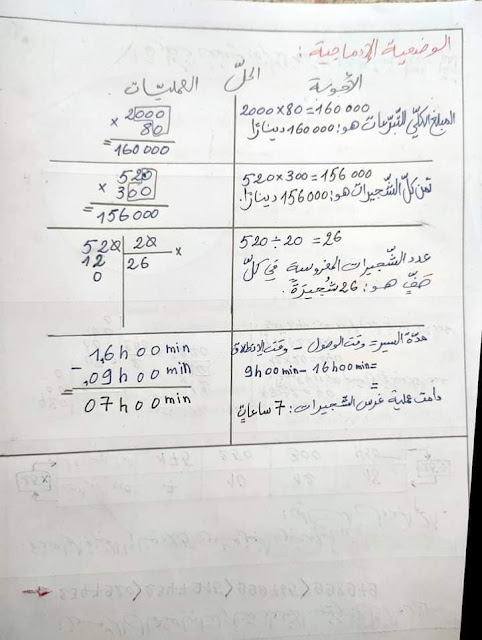 الوضعية الإدماجية :
الحلّ
الأجوبة
العمليّات
2000×80=160000
المبلغ الكلّي للتّبرّعات هو: 160000 دينارًا
2000
× 80
= 160000
520×300=156000
ثمن كلّ الشّجيرات هو: 156000 دينارًا.
520
× 300
= 156000
520÷20 =26
عدد الشّجيرات المغروسة في كلّ
صفٍّ هو: 26 شُجيرَةً
520 20 ×
12 26
0
مدّة السير= وقت الوصول - وقت الإنطلاق
9h00min - 16h00min=
=
دامت عملية غرس الشجيرات: 7 ساعاتٍ
16h00min
- 09h00min
= 07h00min